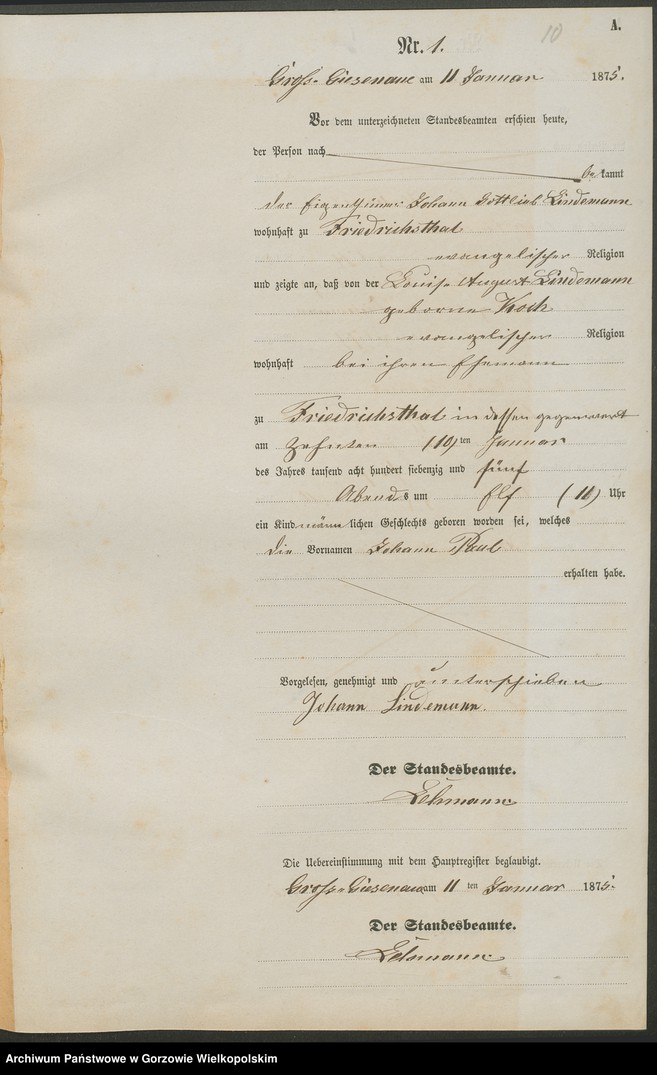 A.
10
Nr. 1.
Gross-Czettritz am 11 Januar 1875.
Vor dem unterzeichneten Standesbeamten erschien heute,
der Person nach
be kannt
der Eigenthümer Johann Gottlieb Lindemann
wohnhaft zu Friedrichsthal
evangelischer Religion
und zeigte an, daß von der Louise August Lindemann
geborne Koch
evangelischer Religion
wohnhaft bei ihren Ehemann
zu Friedrichsthal in dessen gegenwart
am zehnten (10) ten Januar
des Jahres tausend acht hundert siebenzig und fünf
Abends um Elf (11) Uhr
ein Kind männlichen Geschlechts geboren worden sei, welches
die Vornamen Johann Paul
erhalten habe.
Vorgelesen, genehmigt und unterschieben
Johann Lindemann.
Der Standesbeamte.
Lehmann
Die Uebereinstimmung mit dem Hauptregister beglaubigt.
am 11 ten Januar 1875.
Der Standesbeamte.
Lehmann
Archiwum Państwowe w Gorzowie Wielkopolskim